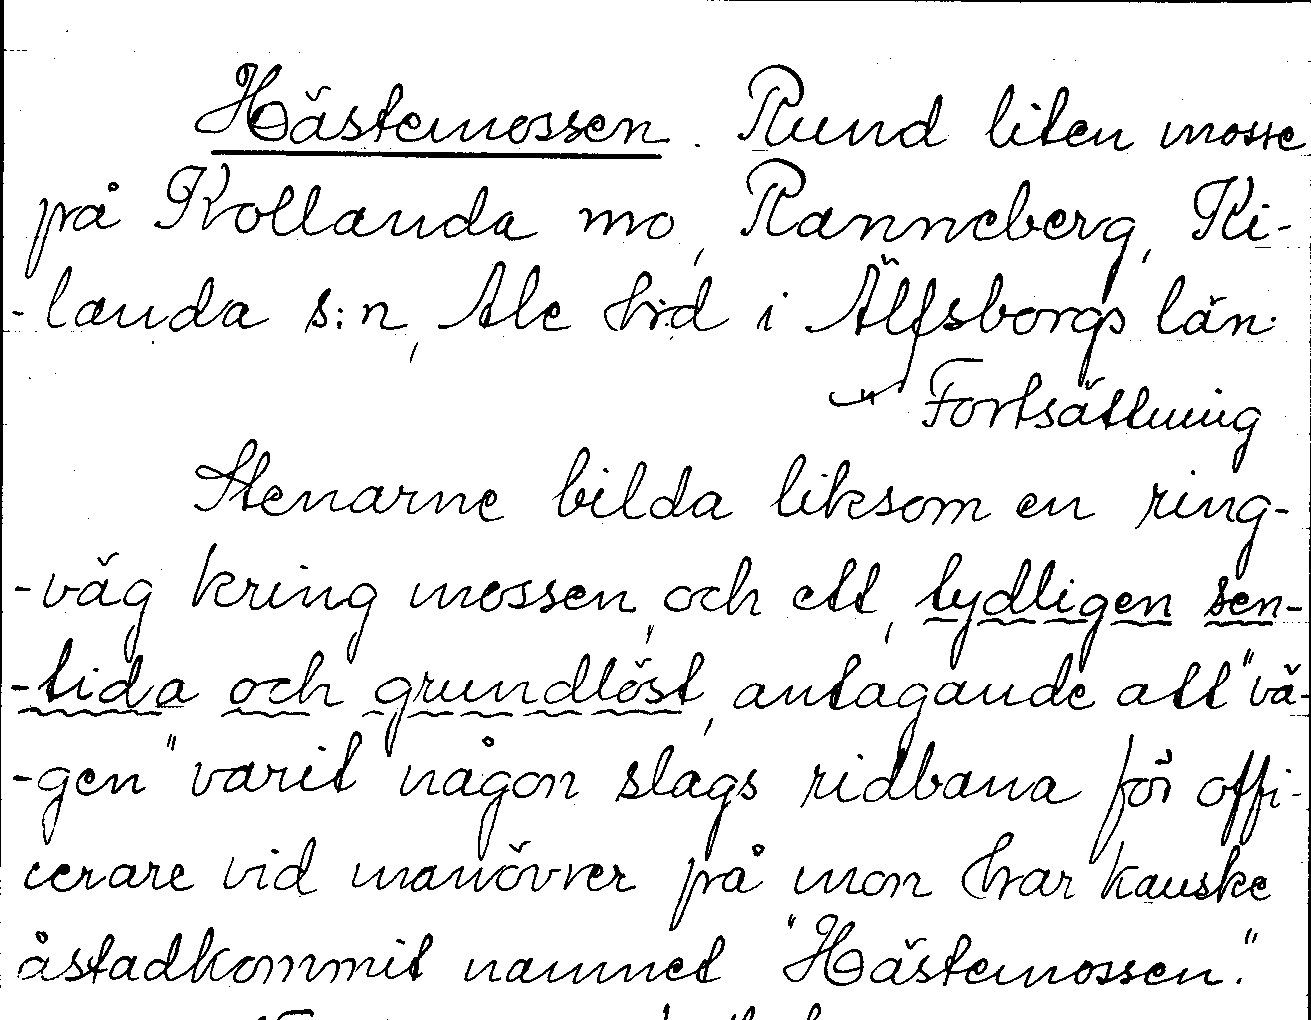 Hästemossen. Rund liten mosse
på Kollanda mo, Ranneberg, Ki-
-landa s:n, Ale hrd i Älfsborgs län.
Fortsättning
Stenarne bilda liksom en ring-
-väg kring mossen, och ett, tydligen sen-
-tida och grundlöst, antagande att "vä-
-gen" varit någon slags ridbana för offi-
cerare vid manövrer på mon har kanske
åstadkommit namnet "Hästemossen."